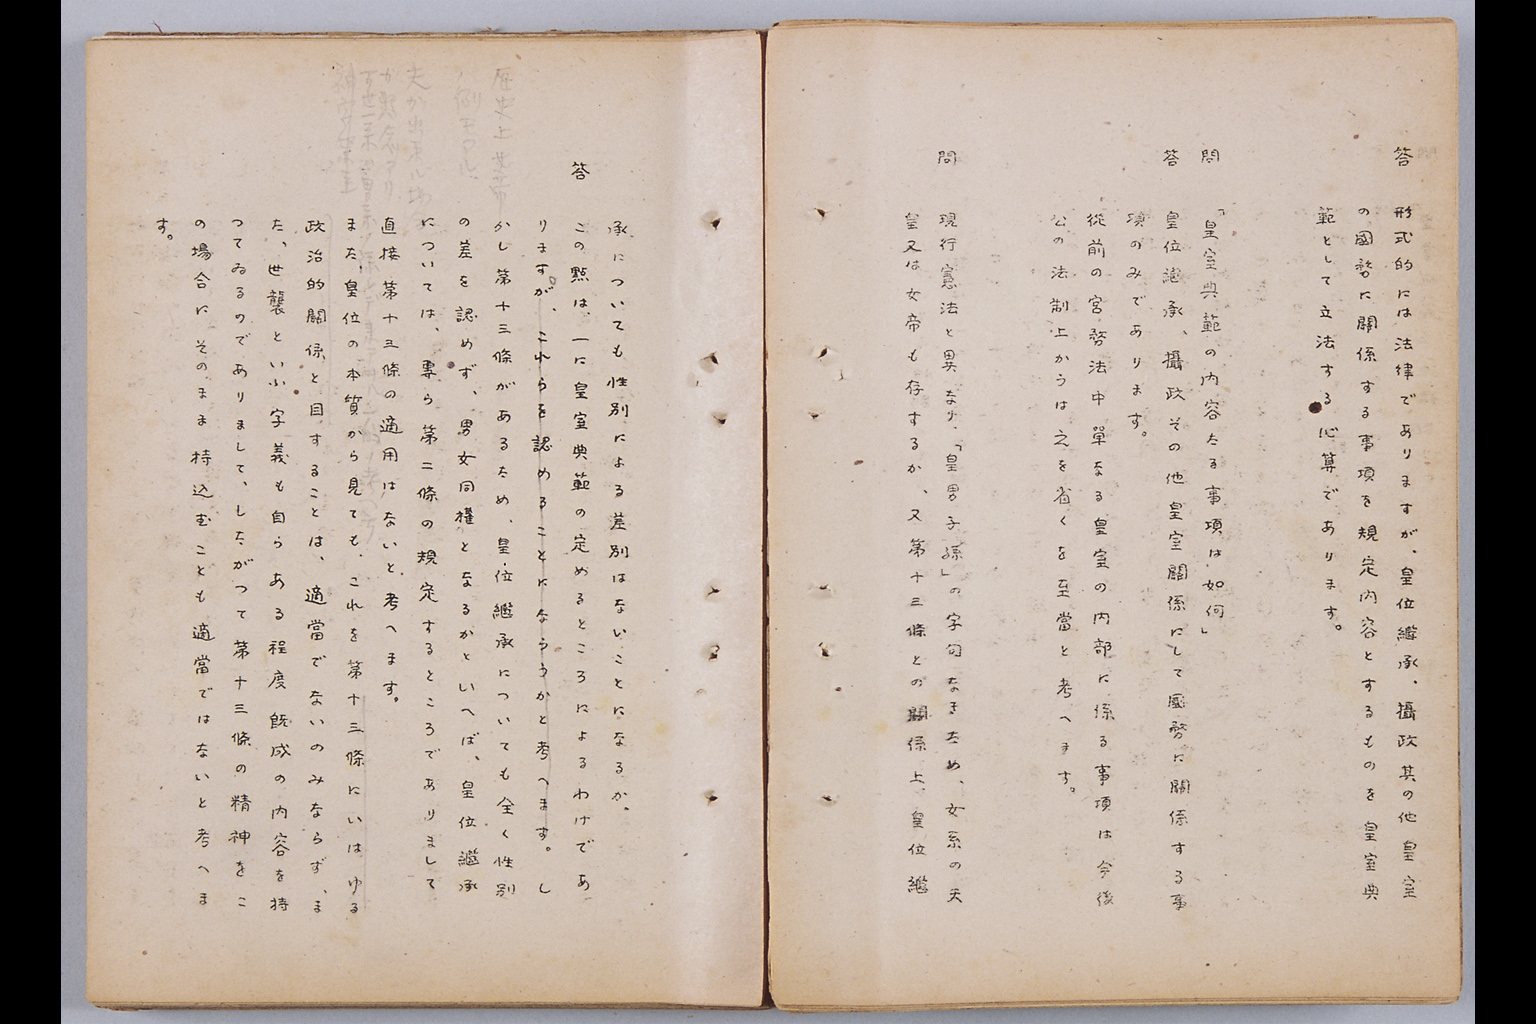 答　形式的には法律でありますが、皇位繼承、攝政其の他皇室
の國務に關係する事項を規定内容とするものを皇室典
範として立法する心算であります。
問　「皇室典範の内容たる事項は如何」
答　皇位繼承、攝政その他皇室關係にして國務に關係する事
項のみであります。
從前の宮務法中單なる皇室の内部に係る事項は今後
公の法制上からは之を省くを至當と考へます。
問　現行憲法と異なり、「皇男子孫」の字句なきため、女系の天
皇又は女帝も存するか、又第十三條との關係上、皇位繼
承についても性別による差別はないことになるか。
答　この點は、一に皇室典範の定めるところによるわけであ
りますが、これらを認めることにならうかと考へます。し
かし第十三條があるため、皇位繼承についても全く性別
の差を認めず、男女同權となるかといへば、皇位繼承
については、專ら第二條の規定するところでありまして
直接第十三條の適用はないと考へます。
また、皇位の本質から見ても、これを第十三條にいはゆる
政治的關係と目することは、適當でないのみならず、ま
た、世襲といふ字義も自らある程度既成の内容を持
つてゐるのでありまして、したがつて第十三條の精神をこ
の場合にそのまま持込むことも適當ではないと考へま
す。
歴史上女帝
ノ例モアル